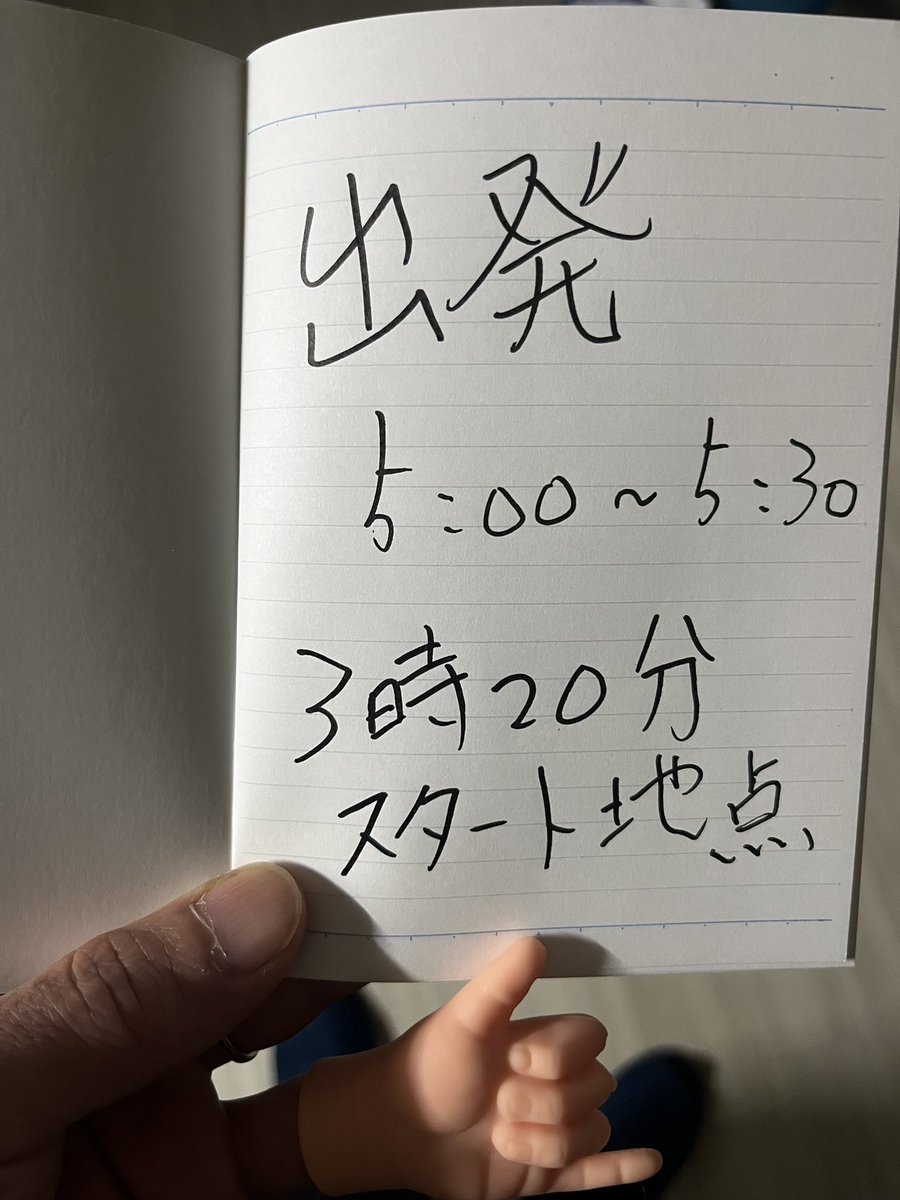 出発
5:00~5:30
3時20分
スタート地点